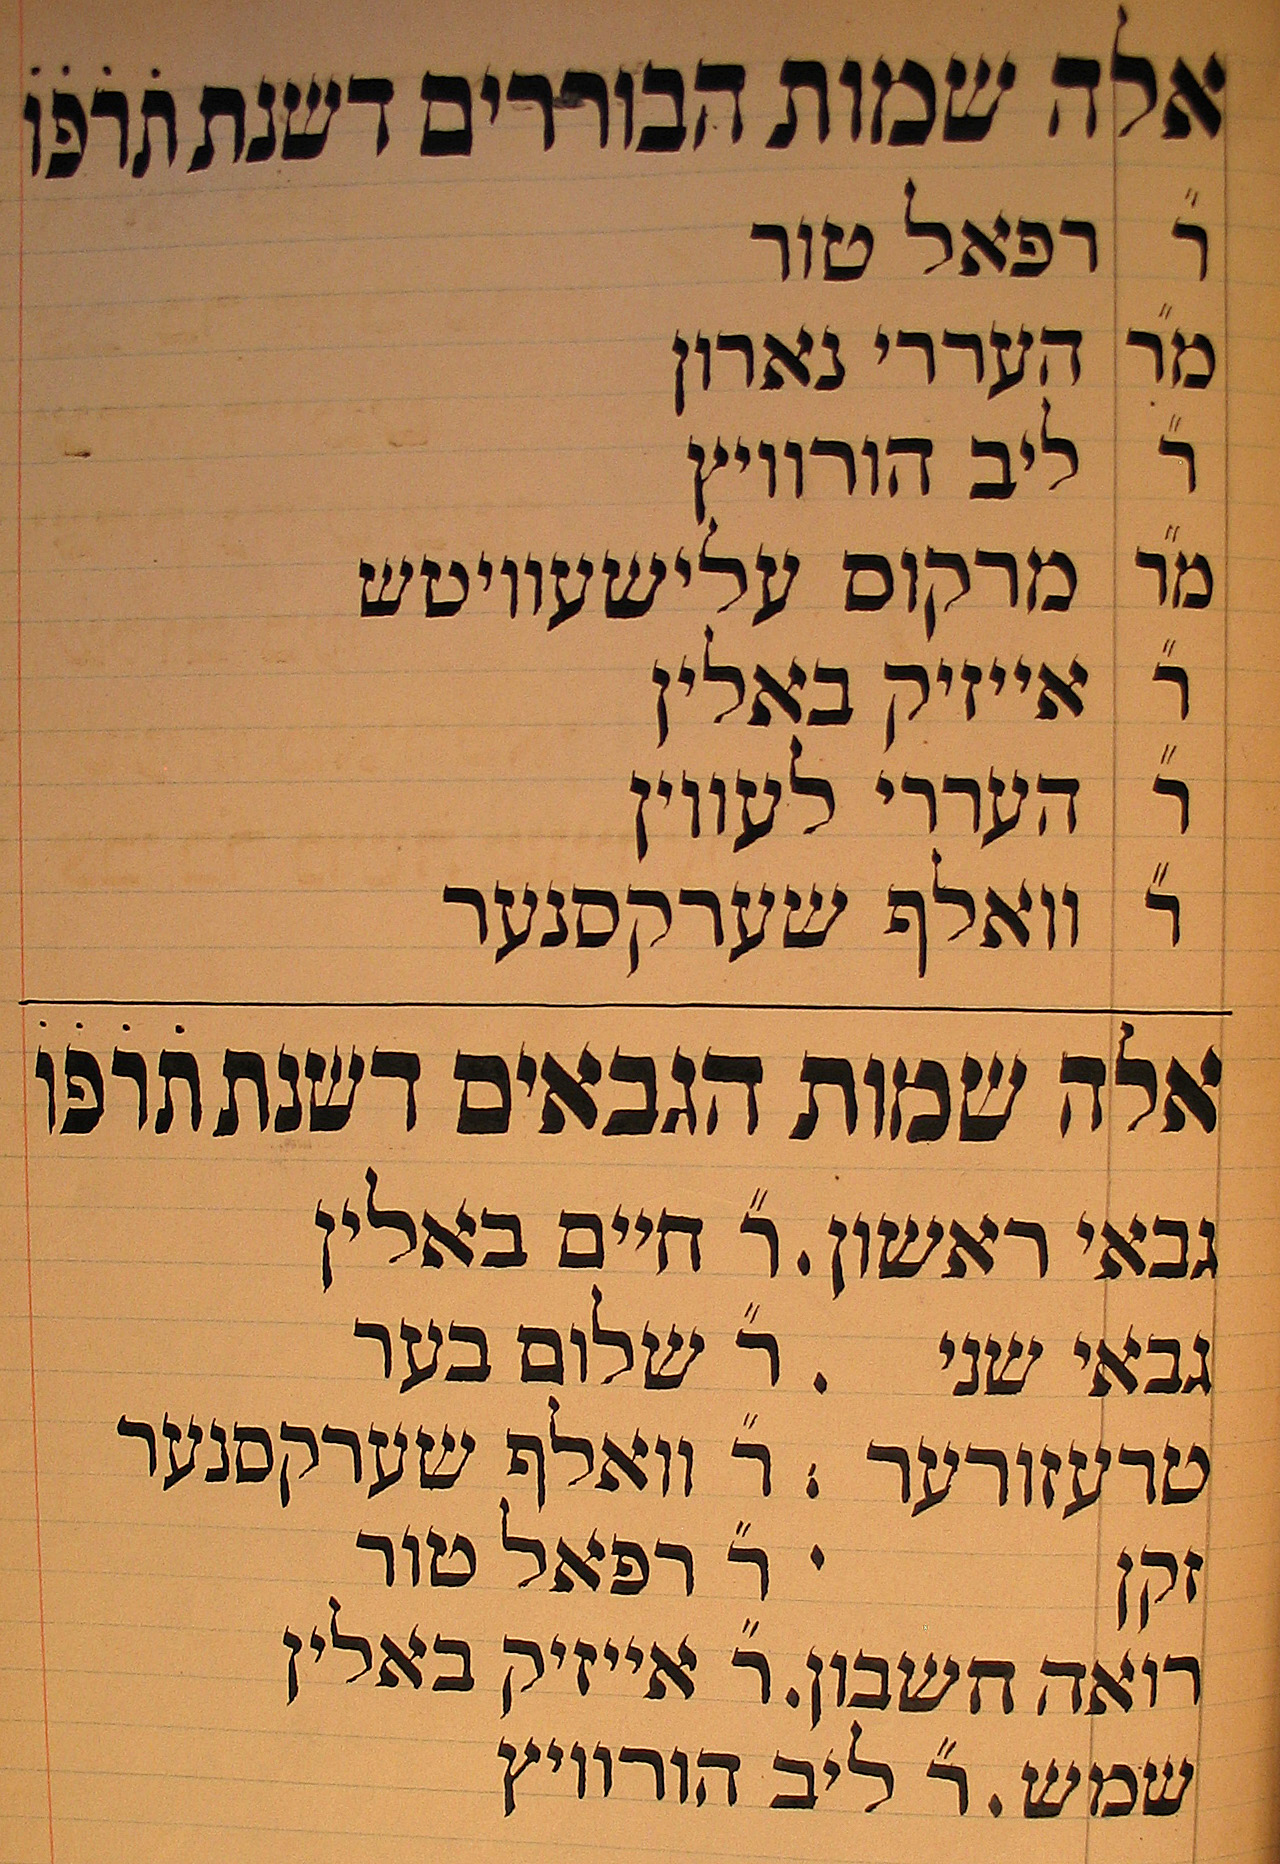 אלה שמות הבוררים דשנת תׄרׄפׄוׄ
ר״ רפאל טור
מ״ר העררי נארון
ר״ ליב הורוויץ
מ״ר מרקוס עלישעוויטש
ר״ אייזיק באלין
ר״ העררי לעווין
ר״ וואלף שערקסנער
אלה שמות הגבאים דשנת תׄרׄפׄוׄ
גבאי ראשון. ר״ חיים באלין
גבאי שני . ר״ שלום בער
טרעזורער : ר״ וואלף שערקסנער
זקן . ר״ רפאל טור
רואה חשבון. ר״ אייזיק באלין
שמש. ר״ ליב הורוויץ